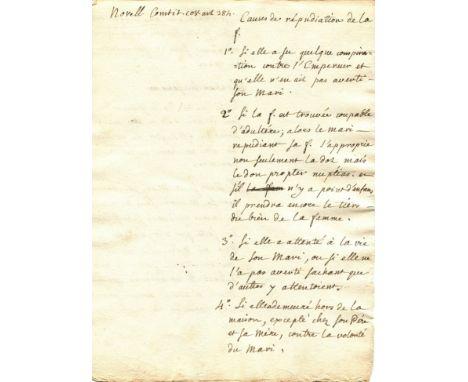 Novell. Constit.
Causes de répudiation de la
f.
1°. Si elle a su quelque conspira-
-tion contre l'Empereur et
qu'elle n'en ait pas averti
son Mari.
2° Si la f. est trouvée coupable
d'adultère; alors le mari
repudiant sa f. s'approprie
non seulement la dot mais
le don propter nuptias. et
s'il n'y a point d'enfans,
il prendra encore le tiers
du bien de la femme.
3°. Si elle a attenté à la vie
de son Mari, ou si elle ne
l'a pas averti sachant que
d'autres y attentoient.
4°. Si elle a demeuré hors de la
maison, excepté chez son Père
et sa Mère, contre la volonté
du Mari.